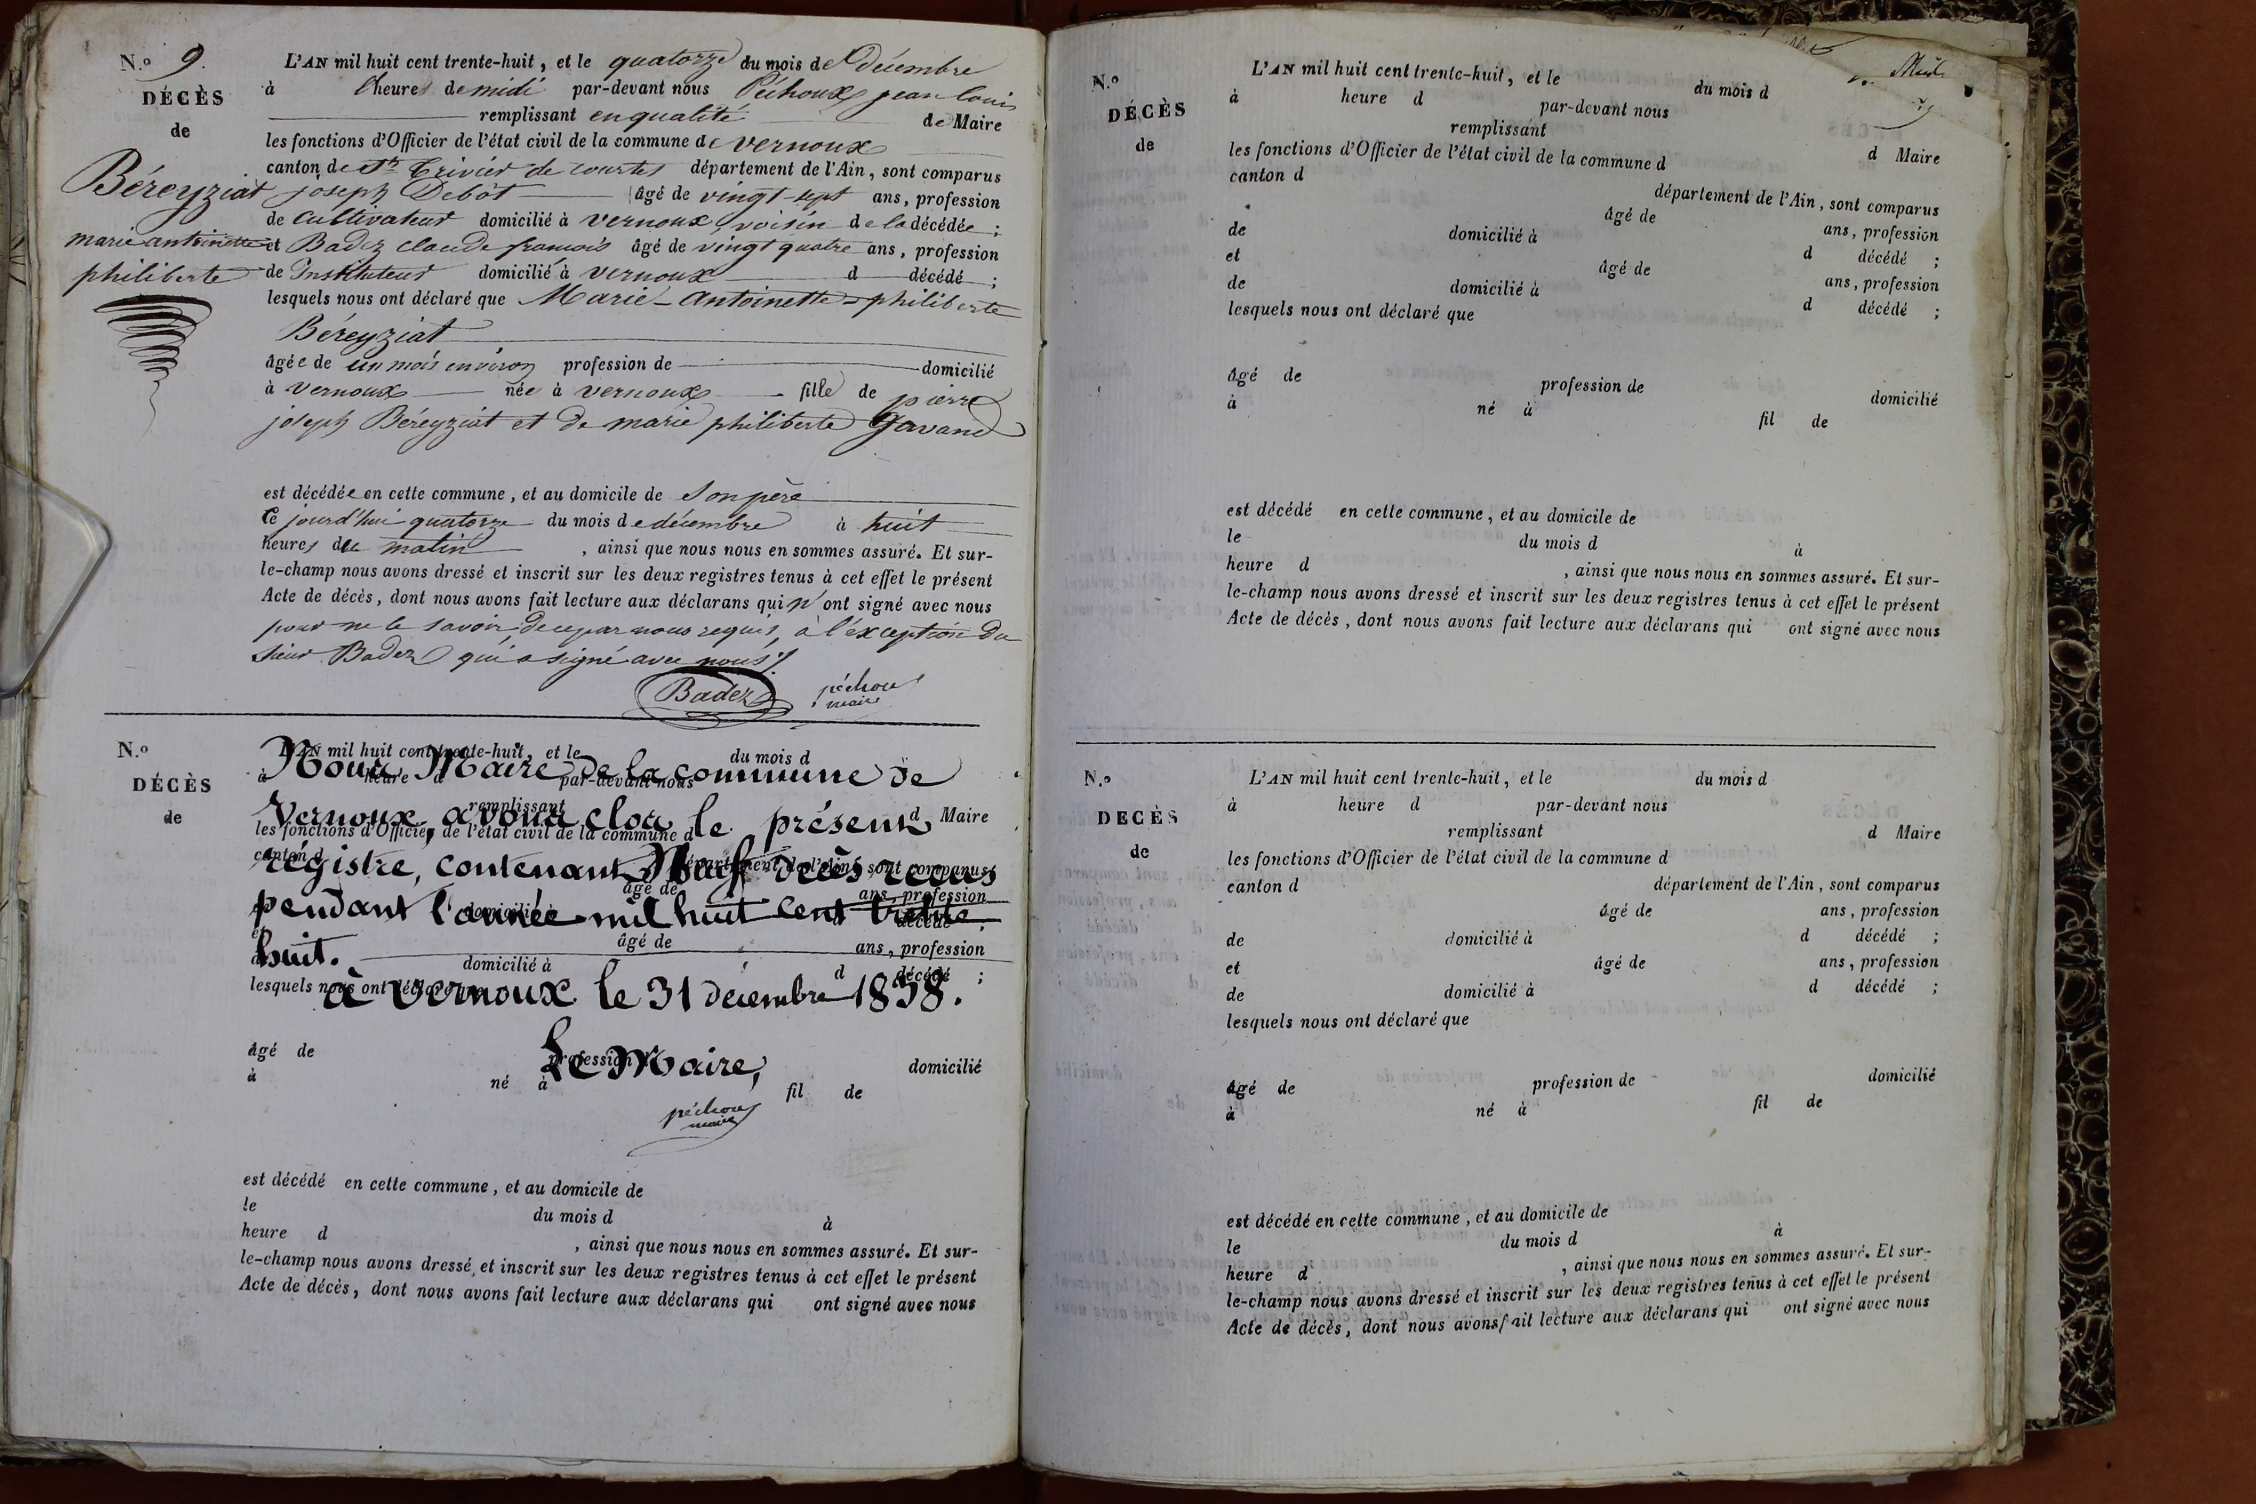 N.º 9.
DÉCÈS
de
Béreyziat
marie antoinette
philiberte
L'AN mil huit cent trente-huit, et le quatorze du mois de décembre
à heures de midi par-devant nous Péchoux jean louis
remplissant en qualité de Maire
les fonctions d'Officier de l'état civil de la commune de vernoux
canton de St Trivier de courtes département de l'Ain, sont comparus
joseph Debôt âgé de vingt-sept ans, profession
de Cultivateur domicilié à vernoux, voisin de la décédée ;
et Badez claude françois âgé de vingt quatre ans, profession
de Instituteur domicilié à vernoux d décédé ;
lesquels nous ont déclaré que Marie-Antoinette-philiberte
Béreyziat
âgée de un mois environ profession de domicilié
à vernoux née à vernoux fille de pierre
joseph Béreyziat et de marie philiberte Gavand
est décédée en cette commune, et au domicile de son père
Ce jourd'hui quatorze du mois de décembre à huit
heures du matin , ainsi que nous nous en sommes assuré. Et sur-
le-champ nous avons dressé et inscrit sur les deux registres tenus à cet effet le présent
Acte de décès, dont nous avons fait lecture aux déclarans qui n'ont signé avec nous
pour ne le savoir, de ce par nous requis, à l'exception du
sieur Badez qui a signé avec nous ./.
Badez péchoux
maire
N.º
DÉCÈS
de
L'AN mil huit cent trente-huit, et le du mois d
à heure d par-devant nous
remplissant d Maire
les fonctions d'Officier de l'état civil de la commune d
canton d département de l'Ain, sont comparus
âgé de ans, profession
domicilié à d décédé ;
et âgé de ans, profession
domicilié à d décédé ;
lesquels nous ont déclaré
Nous, Maire de la commune de
Vernoux avons clos le présent
régistre, contenant Neuf décès recus
pendant l'année mil huit cent trente
huit.
à Vernoux le 31 décembre 1838.
Le Maire,
âgé de profession domicilié
à né à fil de
péchoux
maire
est décédé en cette commune, et au domicile de
le du mois d à
heure d , ainsi que nous nous en sommes assuré. Et sur-
le-champ nous avons dressé et inscrit sur les deux registres tenus à cet effet le présent
Acte de décès, dont nous avons fait lecture aux déclarans qui ont signé avec nous
N.º
DÉCÈS
de
L'AN mil huit cent trente-huit, et le du mois d
à heure d par-devant nous
remplissant d Maire
les fonctions d'Officier de l'état civil de la commune d
canton d département de l'Ain, sont comparus
âgé de ans, profession
de domicilié à d décédé ;
et âgé de ans, profession
de domicilié à d décédé ;
lesquels nous ont déclaré que
âgé de profession de domicilié
à né à fil de
est décédé en cette commune, et au domicile de
le du mois d à
heure d , ainsi que nous nous en sommes assuré. Et sur-
le-champ nous avons dressé et inscrit sur les deux registres tenus à cet effet le présent
Acte de décès, dont nous avons fait lecture aux déclarans qui ont signé avec nous
N.º
DECÈS
de
L'AN mil huit cent trente-huit, et le du mois d
à heure d par-devant nous
remplissant d Maire
les fonctions d'Officier de l'état civil de la commune d
canton d département de l'Ain, sont comparus
âgé de ans, profession
de domicilié à d décédé ;
et âgé de ans, profession
de domicilié à d décédé ;
lesquels nous ont déclaré que
âgé de profession de domicilié
à né à fil de
est décédé en cette commune, et au domicile de
le du mois d à
heure d , ainsi que nous nous en sommes assuré. Et sur-
le-champ nous avons dressé et inscrit sur les deux registres tenus à cet effet le présent
Acte de décès, dont nous avons fait lecture aux déclarans qui ont signé avec nous